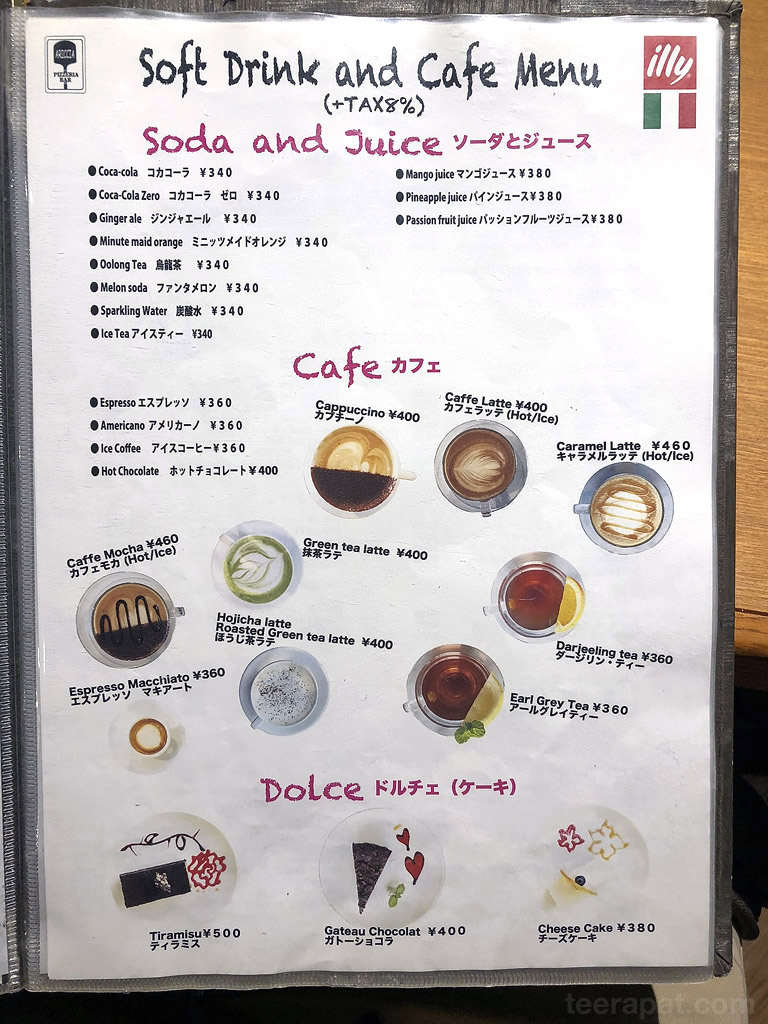 PIZZERIA
BAR
Soft Drink and Cafe Menu
(+TAX8%)
illy
Soda and Juice ソーダとジュース
●Coca-cola コカコーラ ¥340
●Coca-Cola Zero コカコーラ ゼロ ¥340
●Ginger ale ジンジャエール ¥340
●Minute maid orange ミニッツメイドオレンジ ¥340
●Oolong Tea 烏龍茶 ¥340
●Melon soda ファンタメロン ¥340
●Sparkling Water 炭酸水 ¥340
●Ice Tea アイスティー ¥340
●Mango juice マンゴジュース¥380
●Pineapple juice パインジュース¥380
●Passion fruit juice パッションフルーツジュース¥380
Cafe カフェ
●Espresso エスプレッソ ¥360
●Americano アメリカーノ ¥360
●Ice Coffee アイスコーヒー¥360
●Hot Chocolate ホットチョコレート¥400
Cappuccino ¥400
カプチーノ
Caffe Latte ¥400
カフェラッテ (Hot/Ice)
Caramel Latte ¥460
キャラメルラッテ (Hot/Ice)
Caffe Mocha ¥460
カフェモカ (Hot/Ice)
Green tea latte ¥400
抹茶ラテ
Hojicha latte
Roasted Green tea latte ¥400
ほうじ茶ラテ
Darjeeling tea ¥360
ダージリン・ティー
Espresso Macchiato ¥360
エスプレッソ マキアート
Earl Grey Tea ¥360
アールグレイティー
Dolce ドルチェ（ケーキ）
Tiramisu¥500
ティラミス
Gateau Chocolat ¥400
ガトーショコラ
Cheese Cake ¥380
チーズケーキ
teerapat.com